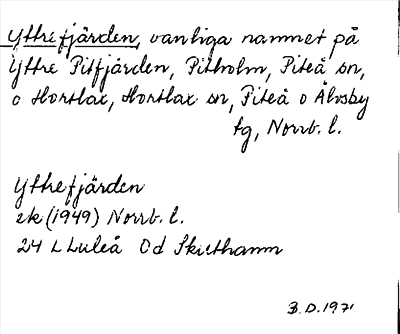 Yttrefjärden, vanliga namnet på
Yttre Pitfjärden, Pitholm, Piteå sn,
o Hortlax, Hortlax sn, Piteå o Älvsby
tg, Norrb. l.
Yttrefjärden
ek (1949) Norrb. l.
24 L Luleå Od Skuthamn
B.D. 1971